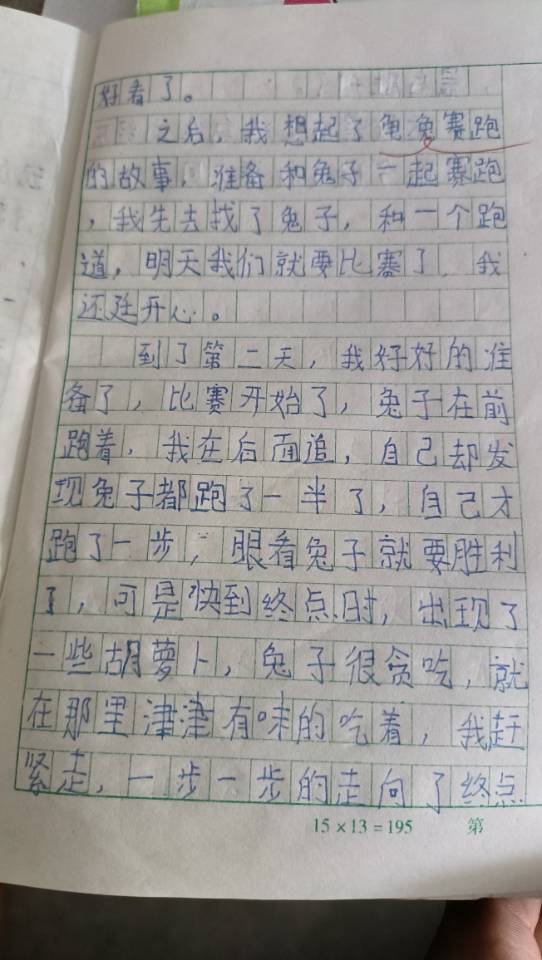 好看了。
之后，我想起了龟兔赛跑
的故事，准备和兔子一起赛跑
，我先去找了兔子，和一个跑
道，明天我们就要比赛了，我
还廷开心。
到了第二天，我好好的准
备了，比赛开始了，兔子在前
跑着，我在后面追，自己却发
现兔子都跑了一半了，自己才
跑了一步，眼看兔子就要胜利
了，可是快到终点时，出现了
一些胡萝卜，兔子很贪吃，就
在那里津津有味的吃着，我赶
紧走，一步一步的走向了终点
15×13=195 第